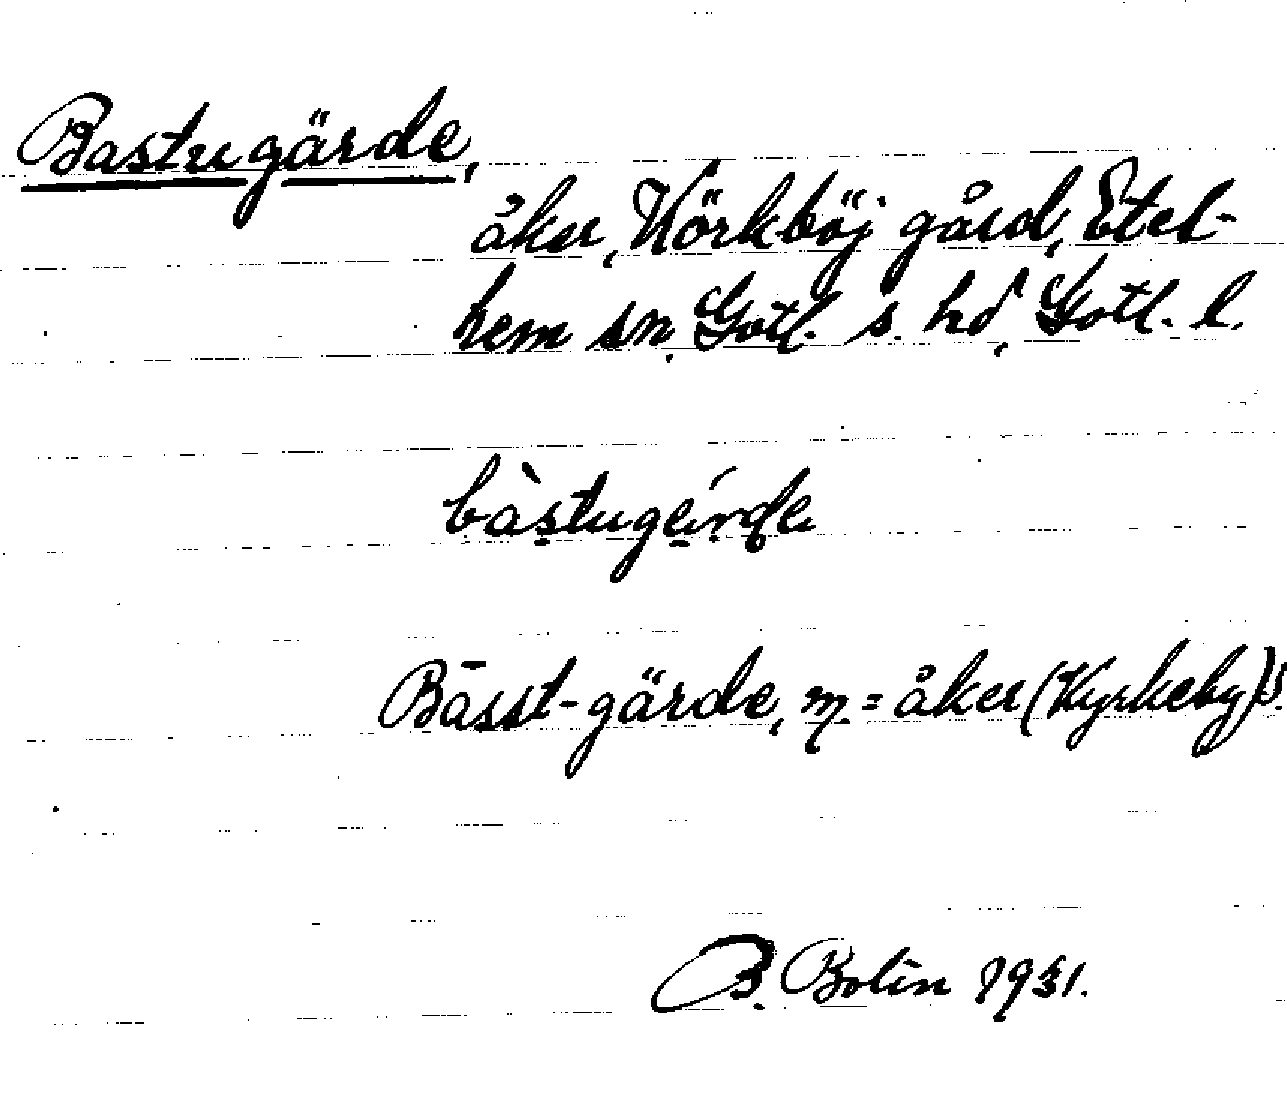 Bastugärde,
åker, Körkböj gård, Etel-
hem sn, Gotl. s. hd, Gotl. l.
bàstugérde
Basst-gärde, m = åker (Kyrkeby) S.
B. Bolin 1931.